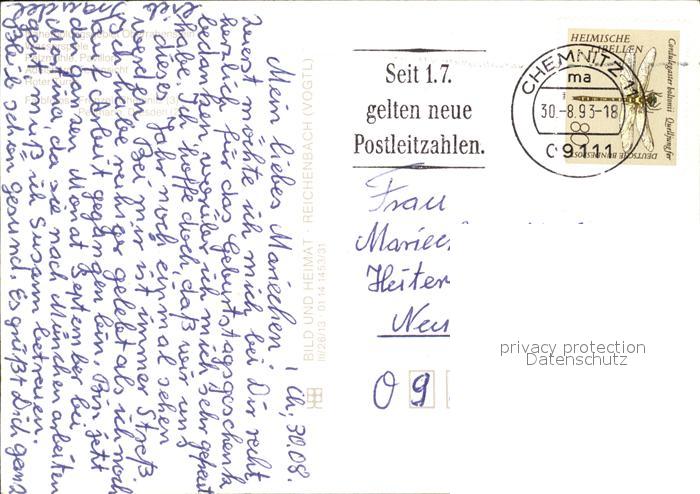 Ch, 30.08.
Mein liebes Mariechen!
Zuerst möchte ich mich bei Dir recht
herzlich für das Geburtstagsgeschenk
bedanken, worüber ich mich sehr gefreut
habe. Ich hoffe doch, daß wir uns
dieses Jahr noch einmal sehen
werden. Bei mir ist immer Streß
Ich habe ruhiger gelebt als ich noch
auf Arbeit gegangen bin. Bin jetzt
den ganzen Monat September bei
da sie nach München arbeiten
muß ich Susann betreuen.
schön gesund. Es grüßt Dich ganz
BILD UND HEIMAT · REICHENBACH (VOGTL)
III/26/13 · 01 14 1453/31
Seit 1.7.
gelten neue
Postleitzahlen.
CHEMNITZ 11
ma
30.-8.93-18
09111
HEIMISCHE
LIBELLEN
Cordulegaster boltonii · Quelljungfer
DEUTSCHE BUNDESPOST
Frau
Mariec
Heiter
Neu
09
privacy protection
Datenschutz